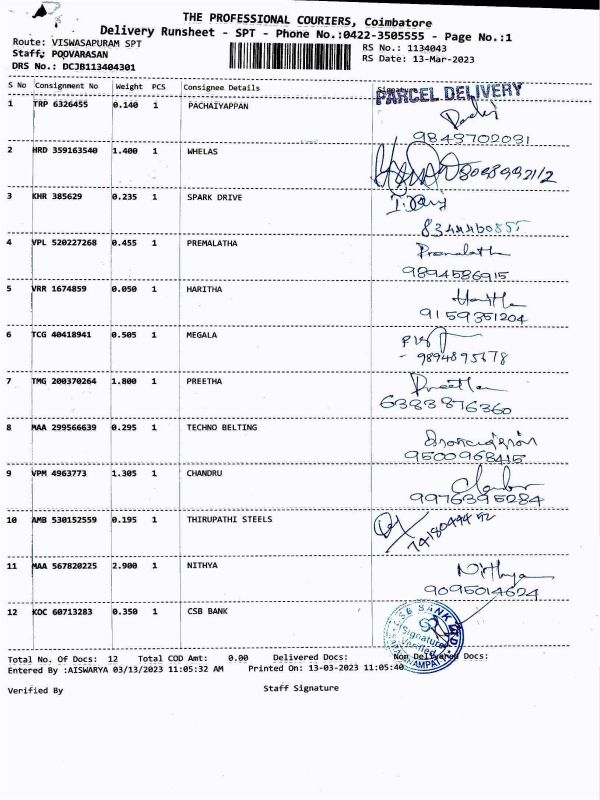 THE PROFESSIONAL COURIERS, Coimbatore
Delivery Runsheet - SPT - Phone No.:0422-3505555 - Page No.:1
Route: VISWASAPURAM SPT
RS No.: 1134043
Staff: POOVARASAN
RS Date: 13-Mar-2023
DRS No.: DCJB113404301
S No Consignment No Weight PCS Consignee Details Signature
PARCEL DELIVERY
1 TRP 6326455 0.140 1 PACHAIYAPPAN
9843702031
2 HRD 359163540 1.400 1 WHELAS
3 KHR 385629 0.235 1 SPARK DRIVE
8344460855
4 VPL 520227268 0.455 1 PREMALATHA Premalatha
9894586915
5 VRR 1674859 0.050 1 HARITHA
9159351204
6 TCG 40418941 0.505 1 MEGALA
9894895678
7 TMG 200370264 1.800 1 PREETHA Preetha
6383876360
8 MAA 299566639 0.295 1 TECHNO BELTING
9500968415
9 VPM 4963773 1.305 1 CHANDRU
9976395284
10 AMB 530152559 0.195 1 THIRUPATHI STEELS
11 MAA 567820225 2.900 1 NITHYA Nithya
9095014624
12 KOC 60713283 0.350 1 CSB BANK
CSB BANK LTD
Signature
Verified
Total No. Of Docs: 12 Total COD Amt: 0.00 Delivered Docs: Non Delivered Docs:
Entered By :AISWARYA 03/13/2023 11:05:32 AM Printed On: 13-03-2023 11:05:40
Verified By Staff Signature